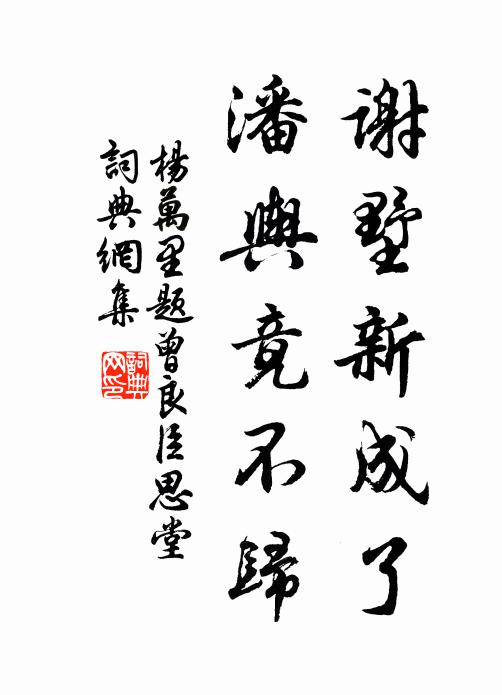 謝墅新成了
潘輿竟不歸
楊萬里題曾良臣思堂
詞典網集
詞典網印